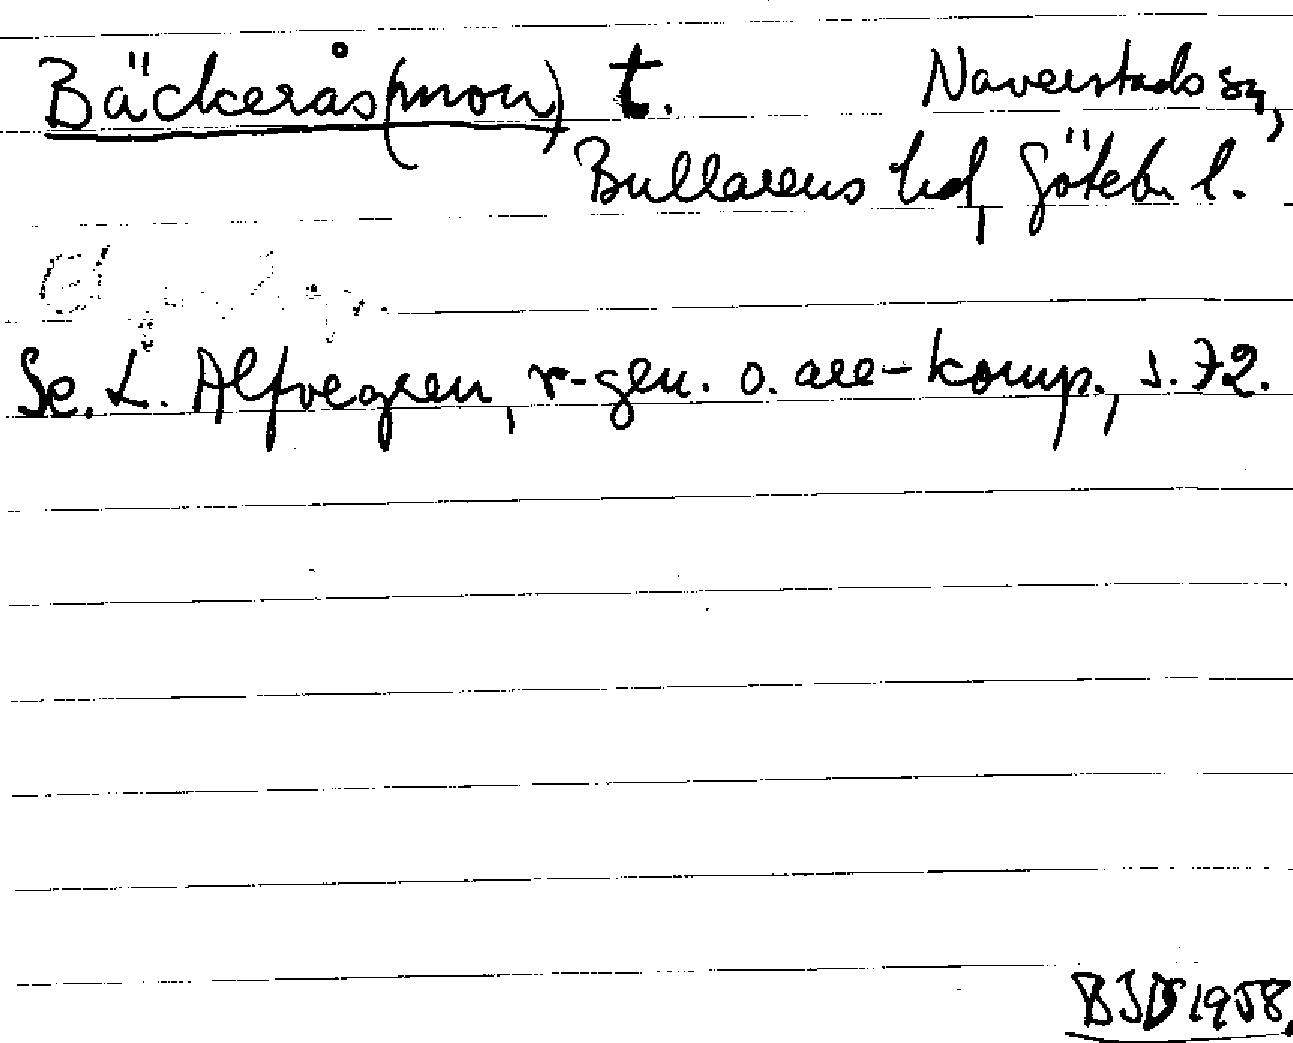 Bäckerås(mon) t. Naverstads sn,
Bullarens hd, Götebr l.
Se. L. Alfvegren, r-gen. o. are-komp., s. 72.
BJDS 1958.